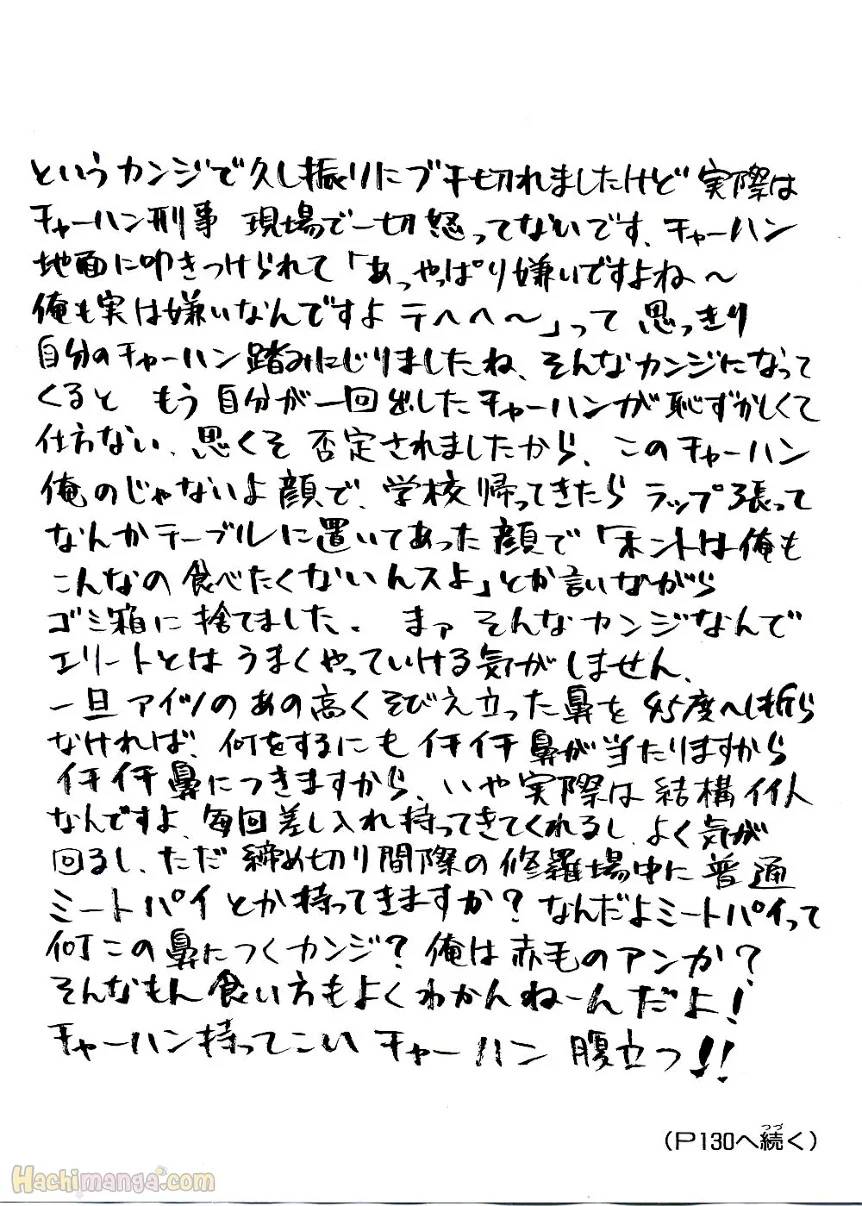 というカンジで久し振りにブチ切れましたけど実際は
チャーハン刑事 現場で一切怒ってないです、チャーハン
地面に叩きつけられて「あっやっぱり嫌いですよね〜
俺も実は嫌いなんですよ テヘヘ〜」って 思っきり
自分のチャーハン踏みにじりましたね、そんなカンジになって
くると もう 自分が一回出したチャーハンが恥ずかしくて
仕方ない、思くそ 否定されましたから、このチャーハン
俺のじゃないよ顔で、学校帰ってきたら ラップ張って
なんかテーブルに置いてあった顔で「ホントは俺も
こんなの食べたくないんスよ」とか言いながら
ゴミ箱に捨てました、 まァ そんなカンジなんで
エリートとは うまくやっていける気がしません、
一旦アイツのあの高くそびえ立った鼻を 45度へし折ら
なければ、何をするにもイチイチ鼻が当たりますから
イチイチ鼻につきますから、いや実際は結構イイ人
なんですよ、毎回差し入れ持ってきてくれるし、よく気が
回るし、ただ 締め切り間際の修羅場中に普通
ミートパイとか持ってきますか？なんだよミートパイって
何この鼻につくカンジ？俺は赤毛のアンか？
そんなもん食い方もよくわかんねーんだよ！
チャーハン持ってこい チャーハン 腹立つ!!
（P130へ続く）
つづ
Hachimanga.com